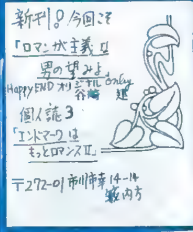 新刊! 今回こそ
「ロマンが主義Ⅱ
男の望みよ」
HappyENDオリジナルonly
個人誌3
「エンドマークは
もっとロマンスⅡ」
〒272-01 市川市幸14-14
方